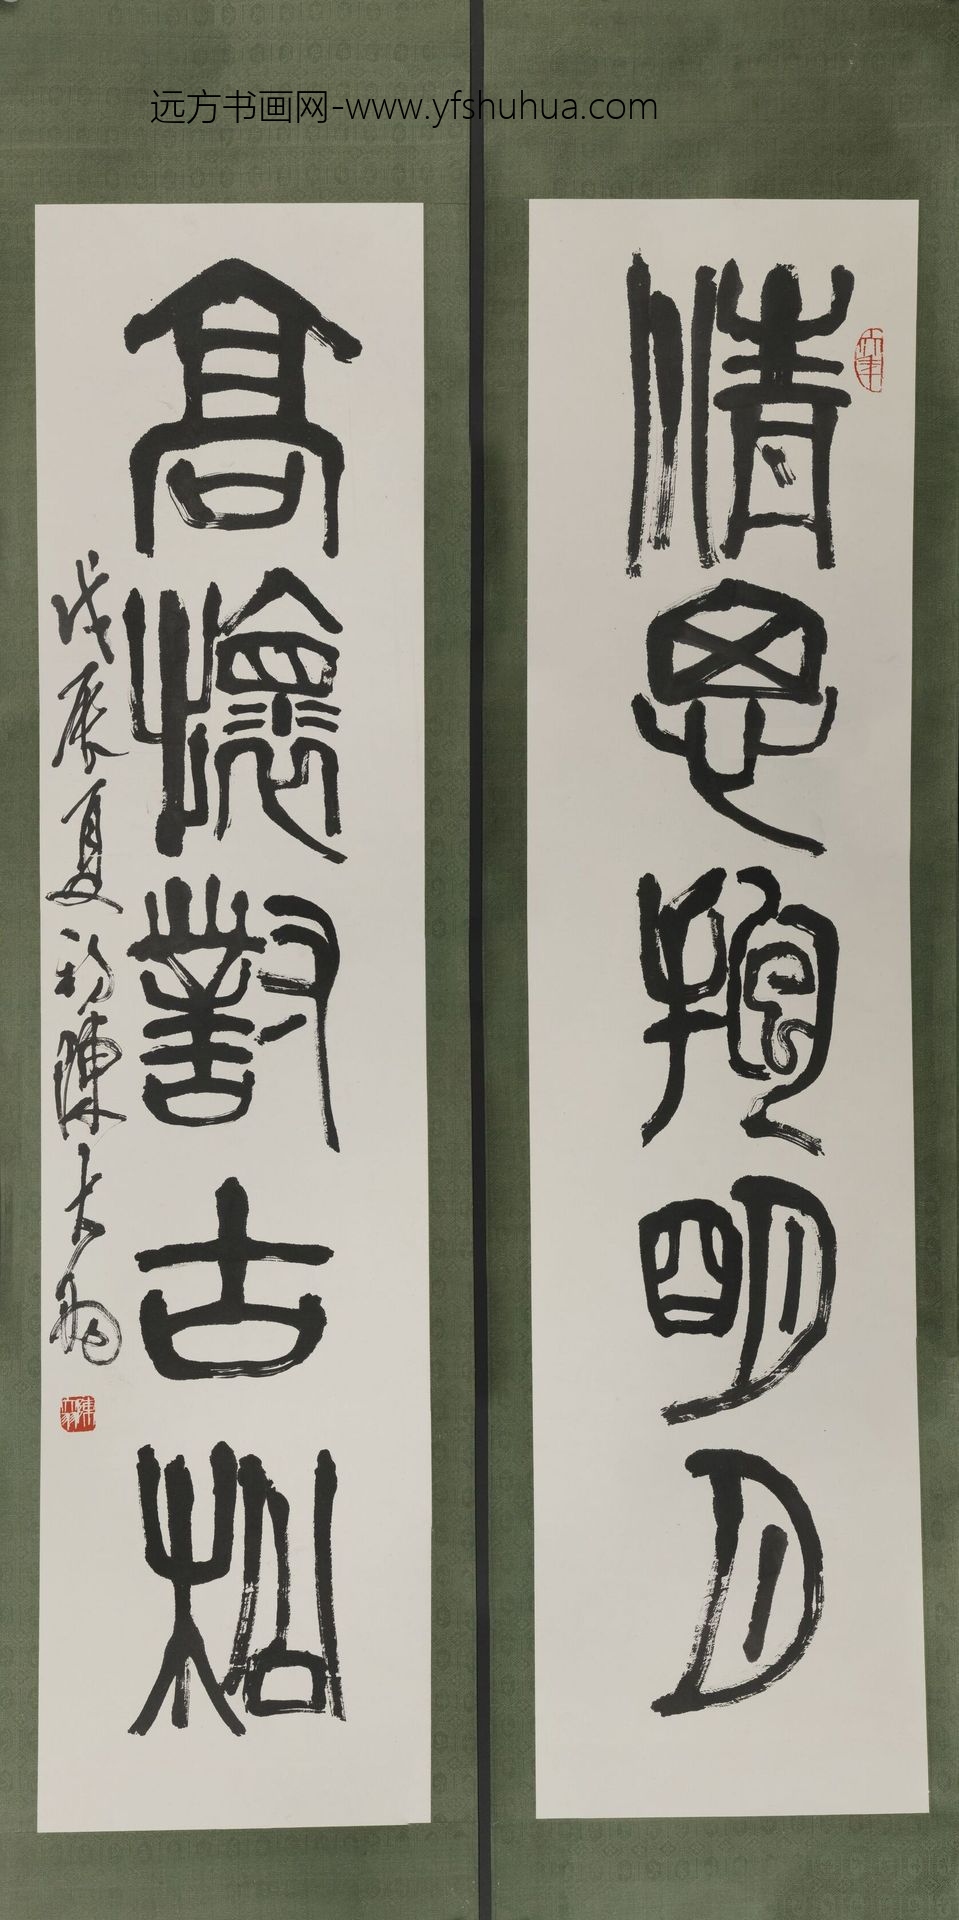 远方书画网-www.yfshuhua.com
清思抱明月
高懷對古松
戊辰夏初陳大羽